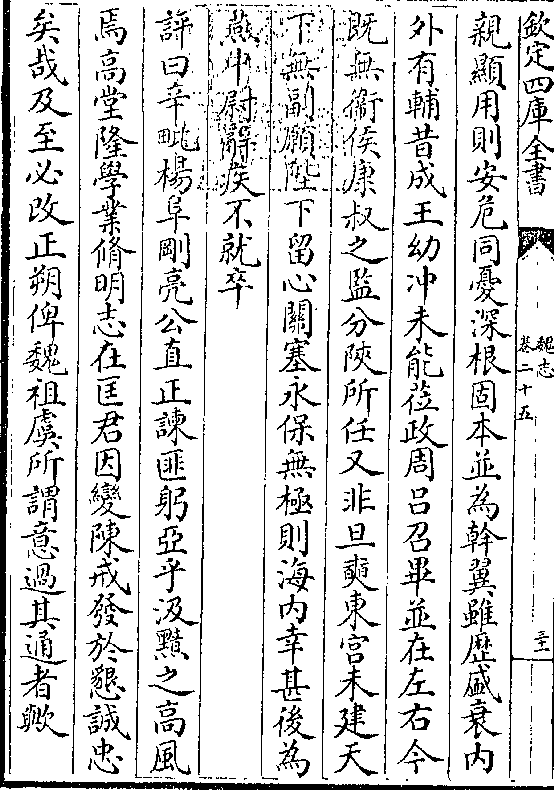 欽定四庫全書
魏志
卷二十五
三十一
親顯用則安危同憂深根固本並為幹翼雖歴盛衰内
外有輔昔成王幼冲未能莅政周吕召畢並在左右今
既無衛侯康叔之監分陜所任又非旦奭東宫未建天
下無副願陛下留心關塞永保無極則海内幸甚後為
燕中尉辭疾不就卒
評曰辛毗楊阜剛亮公直正諫匪躬亞乎汲黯之高風
焉高堂隆學業脩明志在匡君因變陳戒發於懇誠忠
矣哉及至必改正朔俾魏祖虞所謂意過其通者歟